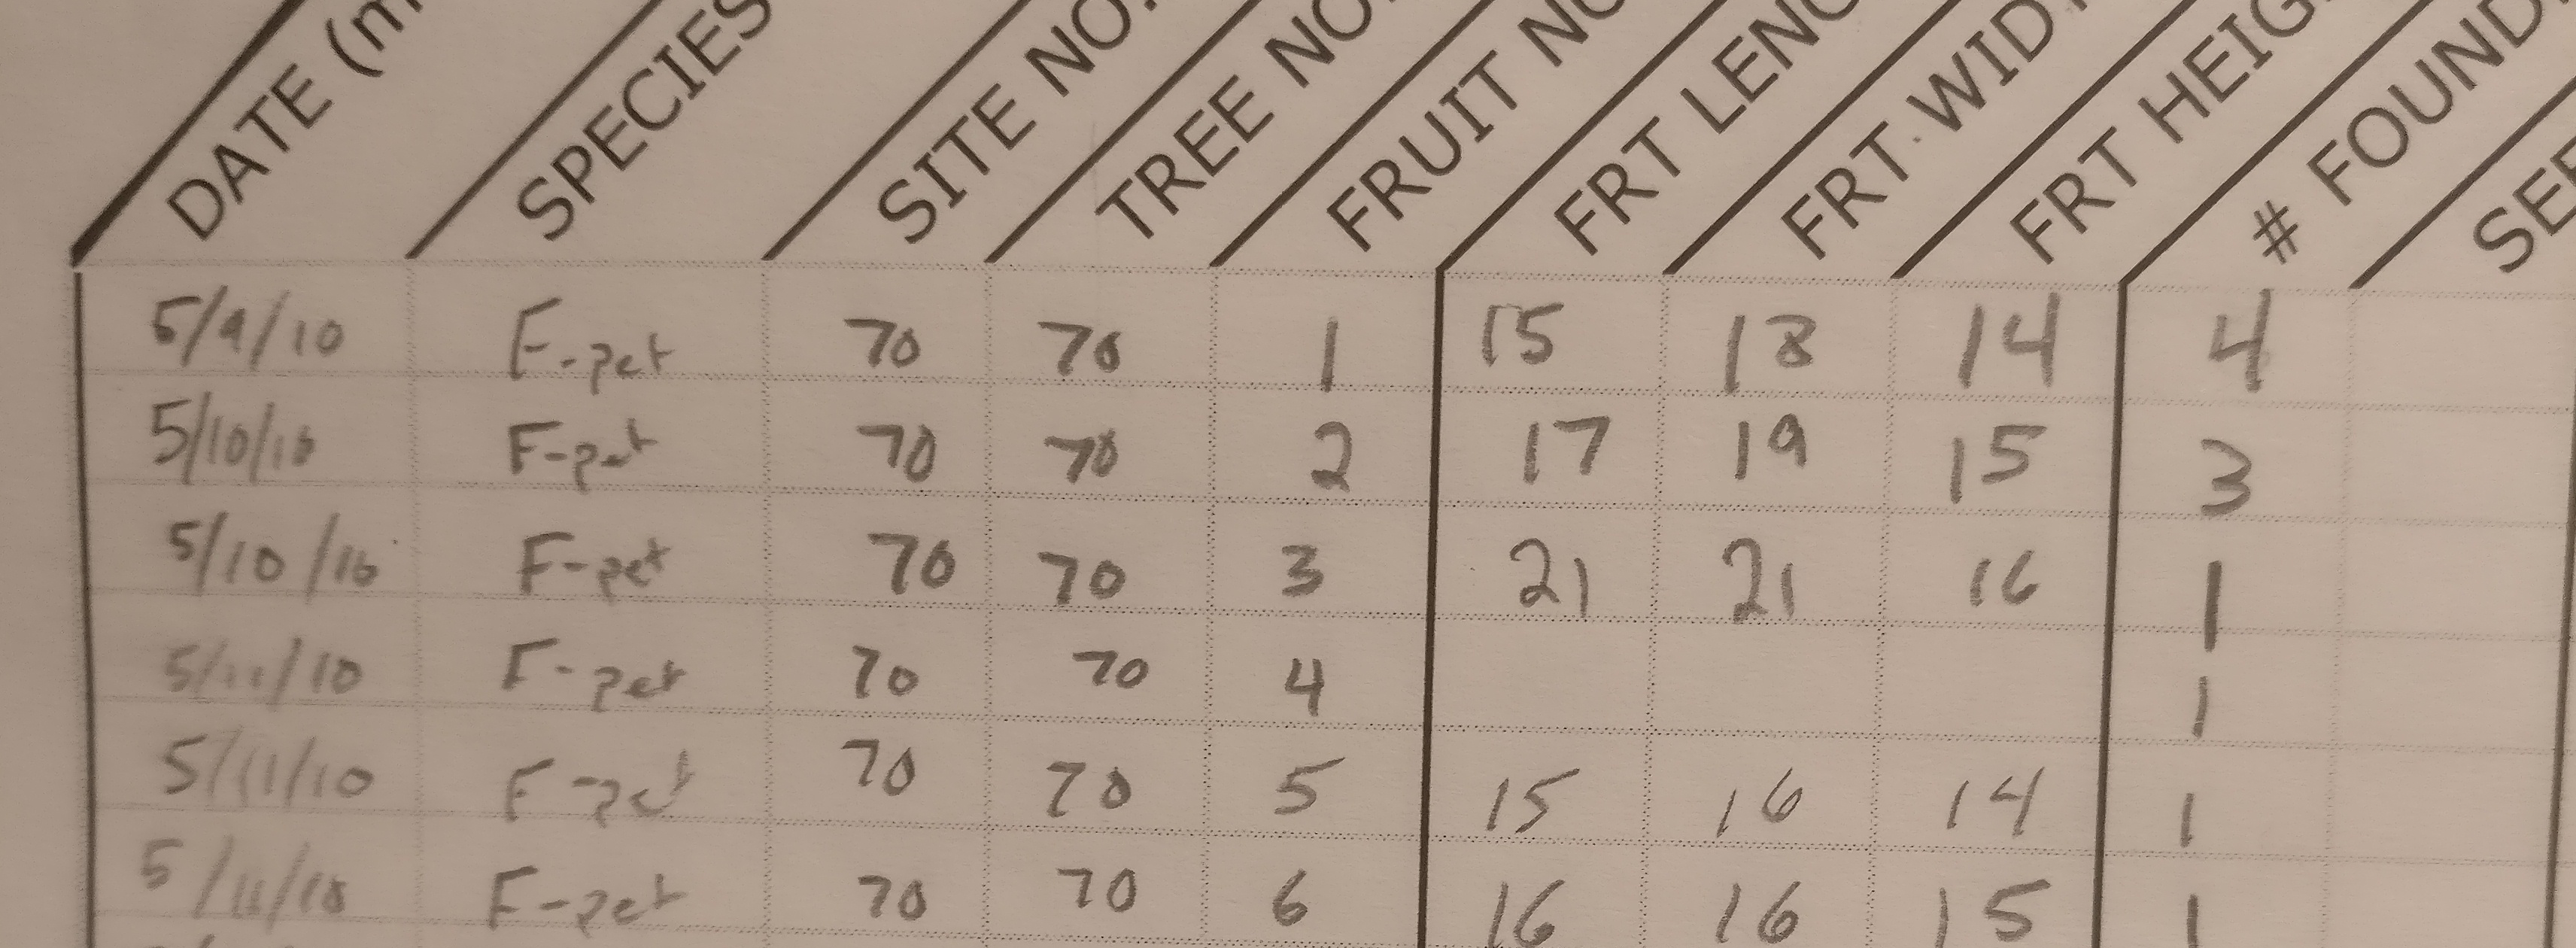 DATE (m SPECIES SITE NO. TREE NO. FRUIT NO FRT LENG FRT WIDT FRT HEIG # FOUND SEE
5/9/10 F-pet 70 70 1 15 18 14 4
5/10/10 F-pet 70 70 2 17 19 15 3
5/10/10 F-pet 70 70 3 21 21 16 1
5/11/10 F-pet 70 70 4 1
5/11/10 F-pet 70 70 5 15 16 14 1
5/11/10 F-pet 70 70 6 16 16 15 1